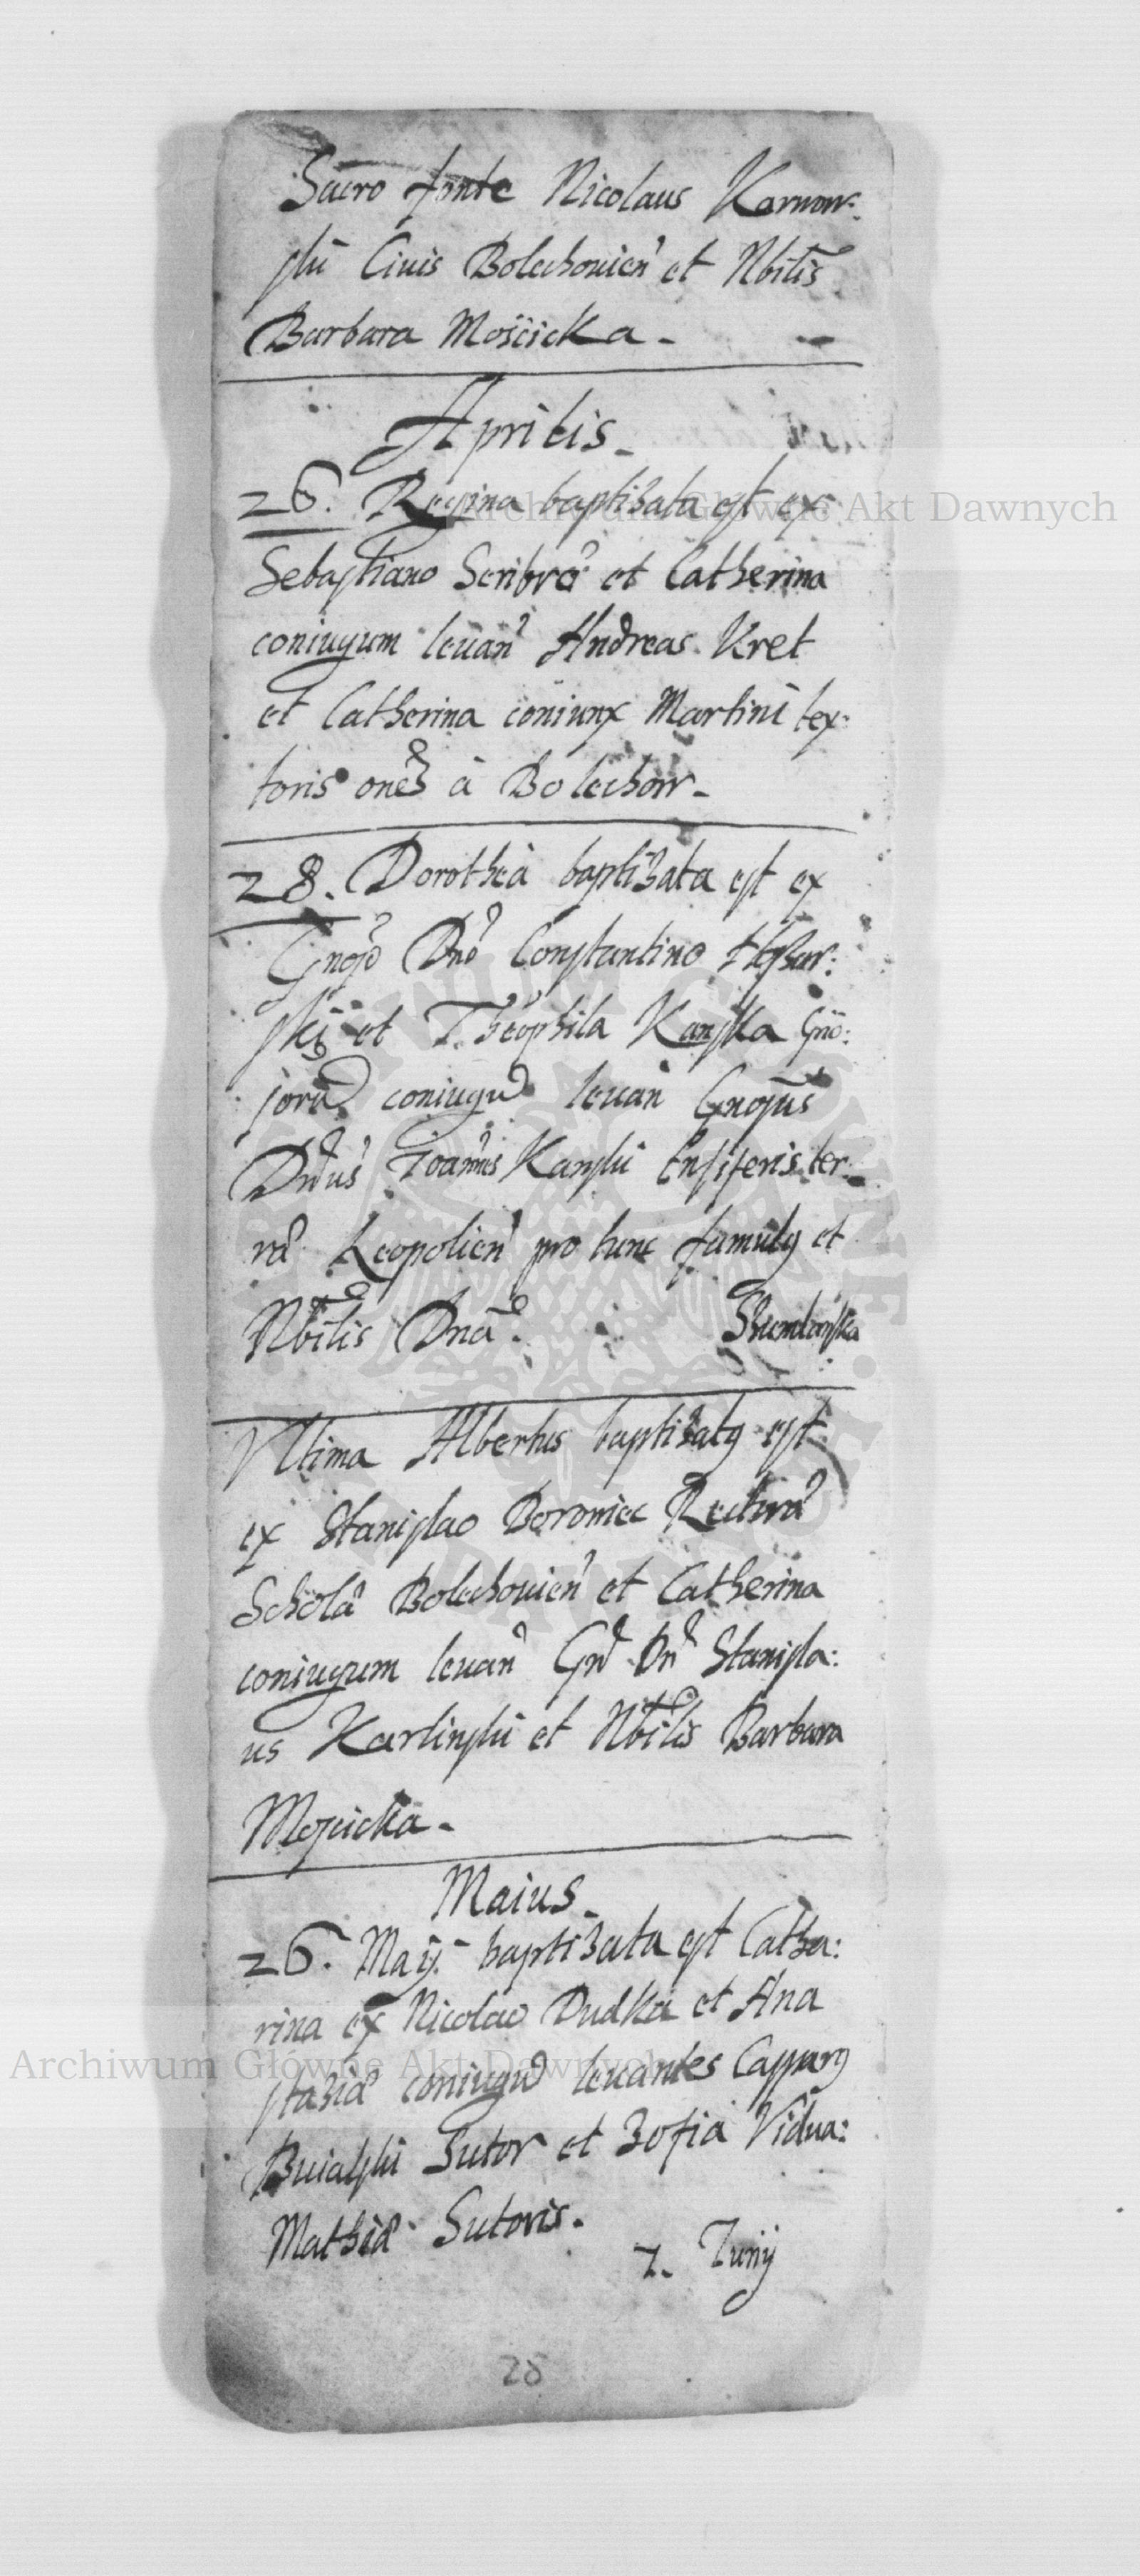 Sacro fonte Nicolaus Karnow:
ski Ciuis Bolechouien et Nbilis
Barbara Mościcka -
Aprilis.
26. Regina baptisata est ex
Sebastiano Scribra et Catherina
coniugum leuan Andreas Kret
et Catherina coniunx Martini tex:
toris ones à Bolechow -
28. Dorothea baptizata est ex
Gnoso Dno Constantino
ski et Theophila Kanska Gno:
soru coniugu leuan Gnosus
Dnus Ioannis Kanski Ensiferis ter:
ra Leopolien pro tunc famulus et
Nbilis Dna. Skumlanska
Ultima Albertus baptizatus est
ex Stanislao Boroniec Rectore
Schola Bolechouien et Catherina
coniugum leuan Gn Dn Stanisla:
us Karlinski et Nbilis Barbara
Moscicka -
Maius.
26. Maij. baptizata est Catha:
rina ex Nicolao Dudka et Ana
stasia coniugu leuantes Casparus
Buialski Sutor et Zofia Vidua:
Mathia Sutoris.
7. Junij
28
Archiwum Główne Akt Dawnych
Archiwum Główne Akt Dawnych